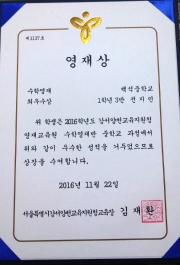 제1127호
영재상
수학영재 백석중학교
최우수상 1학년 3반 전지민
위 학생은 2016학년도 강서양천교육지원청
영재교육원 수학영재반 중학교 과정에서
위와 같이 우수한 성적을 거두었으므로
상장을 수여합니다.
2016년 11월 22일
서울특별시강서양천교육지원청교육장 김재환